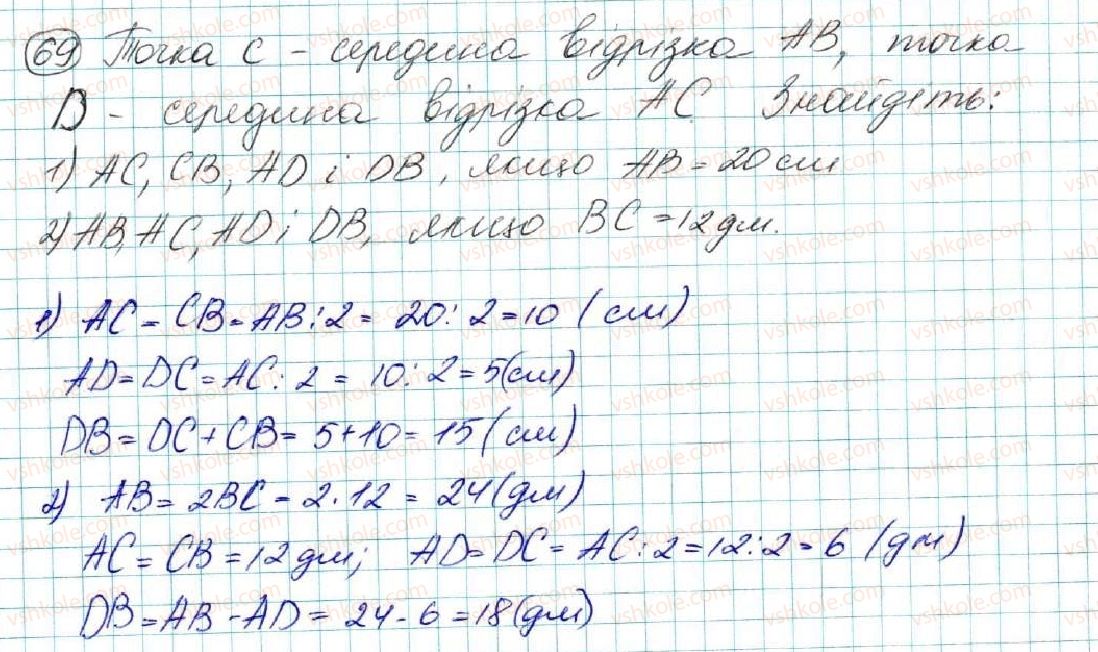 69 Точка C - середина відрізка AB, точка
D - середина відрізка AC Знайдіть:
1) AC, CB, AD і DB, якщо AB = 20 см
2) AB, AC, AD і DB, якщо BC = 12 дм.
1) AC = CB = AB : 2 = 20 : 2 = 10 (см)
AD = DC = AC : 2 = 10 : 2 = 5 (см)
DB = DC + CB = 5 + 10 = 15 (см)
2) AB = 2BC = 2 · 12 = 24 (дм)
AC = CB = 12 дм; AD = DC = AC : 2 = 12 : 2 = 6 (дм)
DB = AB - AD = 24 - 6 = 18 (дм)